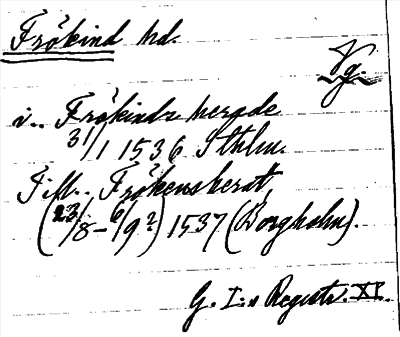 Frökind hd.
Vg.
i.. Frökindz herade
31/1 1536 Sthlm.
Till.. Frökensherat,
(23/8–6/9?) 1537 (Borgholm).
G. I:s Registr. XI.